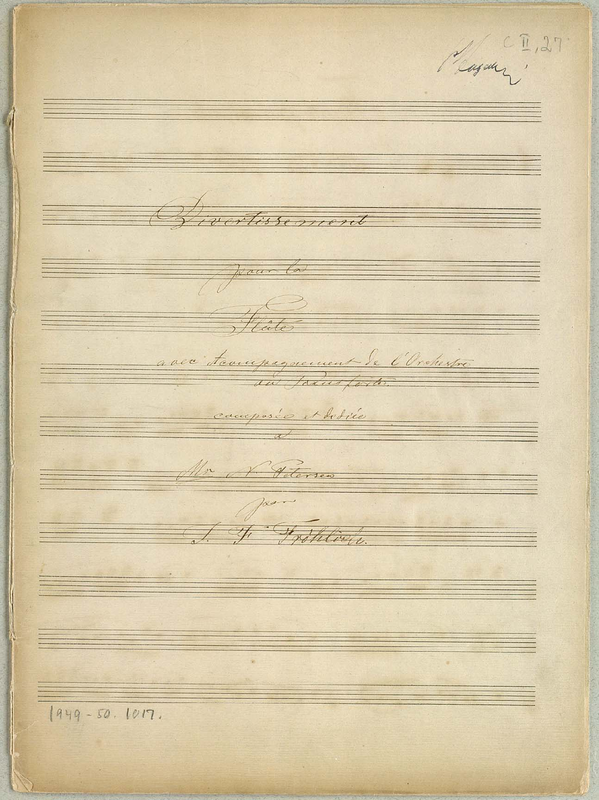 C II, 27
Divertissement
pour la
Flûte
avec Acompagnement de l'Orchestre
ou Pianoforte.
composée et dediée
a
Mr N. Petersen
par
J. F. Fröhlich.
1949-50. 1017.